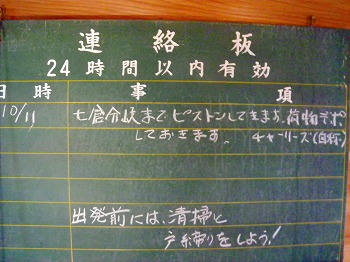 連絡板
24時間以内有効
日時 事項
10/11 七倉分岐までピストンしてきます。荷物デポ
しておきます。 チャーリーズ(自称)
出発前には、清掃と
戸締りをしよう!